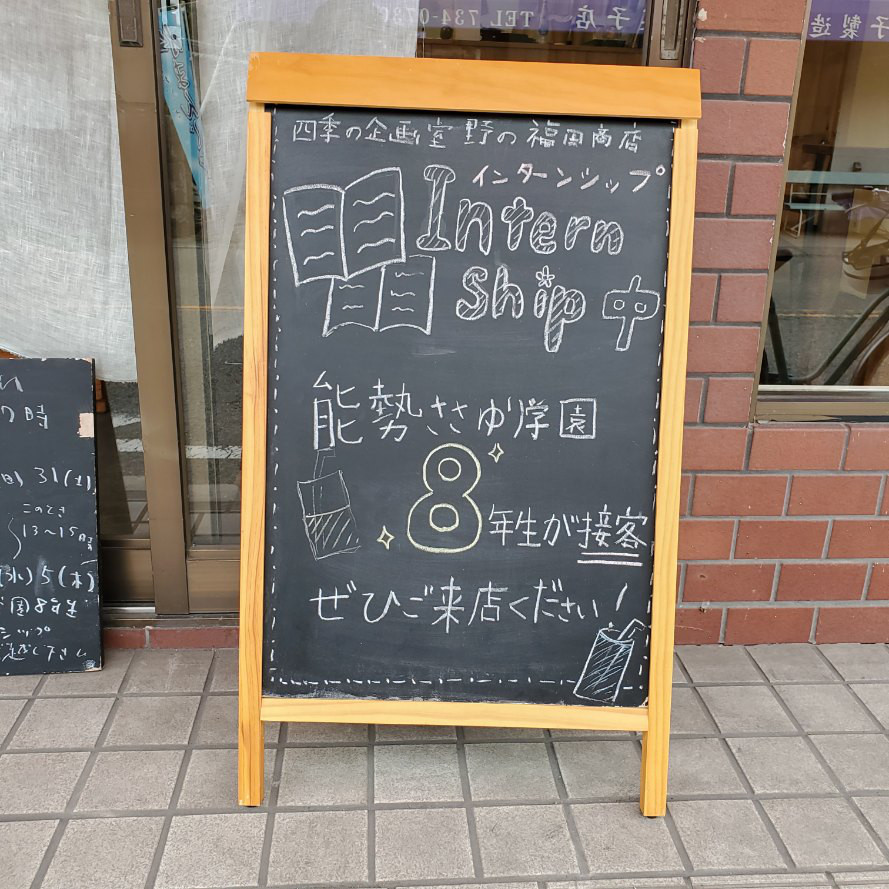 子店 TEL 734-0730
子製造
四季の企画室 野の福田商店
インターンシップ
Intern
Ship 中
能勢ささゆり学園
8年生が接客
ぜひご来店ください!
の時
31(土)
このとき
13〜15時
(水)5(木)
園8年生
シップ